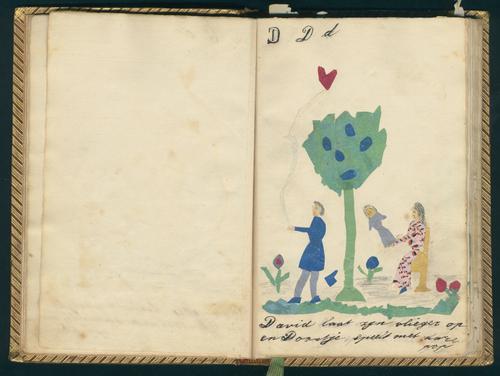 D D d
David laat zyn vlieger op
en Doortje, speelt met hare
pop